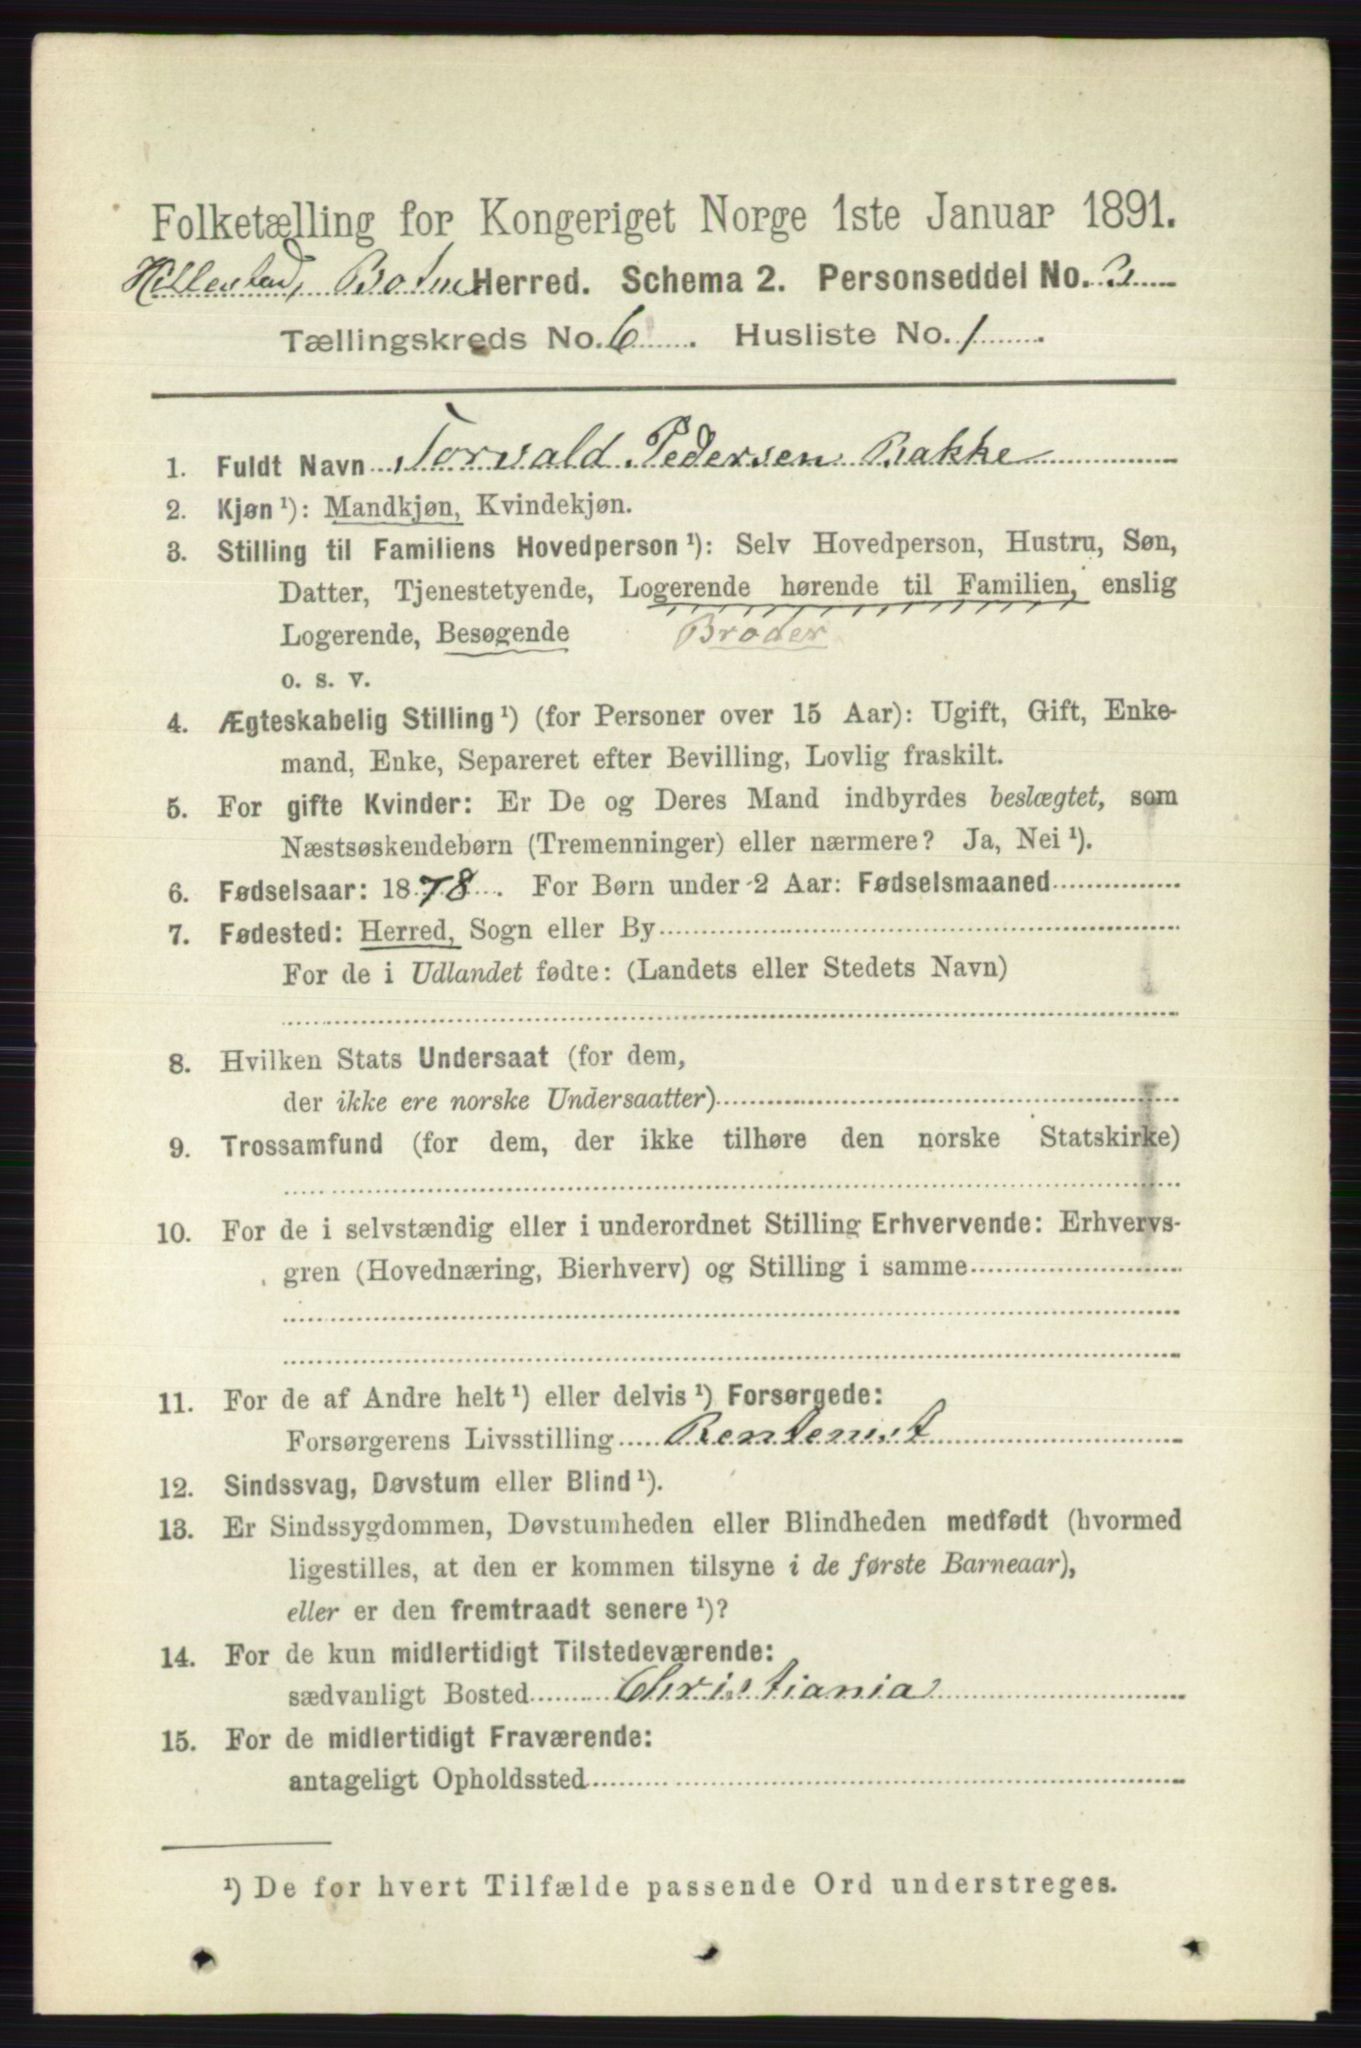 Folketælling for Kongeriget Norge 1ste Januar 1891.
Hillestad, Botne Herred. Schema 2. Personseddel No. 3
Tællingskreds No. 6. Husliste No. 1.
1. Fuldt Navn Torvald Pedersen Bakke
2. Kjøn ¹): Mandkjøn, Kvindekjøn.
3. Stilling til Familiens Hovedperson ¹): Selv Hovedperson, Hustru, Søn,
Datter, Tjenestetyende, Logerende hørende til Familien, enslig
Logerende, Besøgende Broder
o. s. v.
4. Ægteskabelig Stilling ¹) (for Personer over 15 Aar): Ugift, Gift, Enke-
mand, Enke, Separeret efter Bevilling, Lovlig fraskilt.
5. For gifte Kvinder: Er De og Deres Mand indbyrdes beslægtet, som
Næstsøskendebørn (Tremenninger) eller nærmere? Ja, Nei ¹).
6. Fødselsaar: 1878. For Børn under 2 Aar: Fødselsmaaned
7. Fødested: Herred, Sogn eller By
For de i Udlandet fødte: (Landets eller Stedets Navn)
8. Hvilken Stats Undersaat (for dem,
der ikke ere norske Undersaatter)
9. Trossamfund (for dem, der ikke tilhøre den norske Statskirke)
10. For de i selvstændig eller i underordnet Stilling Erhvervende: Erhvervs-
gren (Hovednæring, Bierhverv) og Stilling i samme
11. For de af Andre helt ¹) eller delvis ¹) Forsørgede:
Forsørgerens Livsstilling Rentenist
12. Sindssvag, Døvstum eller Blind ¹).
13. Er Sindssygdommen, Døvstumheden eller Blindheden medfødt (hvormed
ligestilles, at den er kommen tilsyne i de første Barneaar),
eller er den fremtraadt senere ¹)?
14. For de kun midlertidigt Tilstedeværende:
sædvanligt Bosted Christiania
15. For de midlertidigt Fraværende:
antageligt Opholdssted
¹) De for hvert Tilfælde passende Ord understreges.